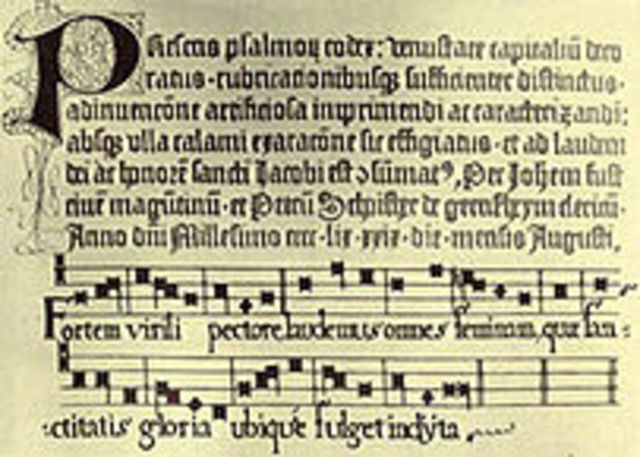 Presens psalmoꝝ codex: venustate capitaliū deco
ratus·rubricationibusqꝫ sufficienter distinctus·
adinuencōne artificiosa imprimendi ac caracterizandi:
absqꝫ ulla calami exaracōne sic effigiatus·et ad laudem
dei ac honorē sancti Jacobi est ɔsūmatꝰ, Per Johēm fust
ciuē magūtinū·et Petrū Schoifher de gernßheym clericū·
Anno dn̄i Millesimo cccc·lix·xxix·die·mensis Augusti,
Fortem virili pectore laudemus omnes feminam, quæ san:
:ctitatis gloria ubique fulget inclyta